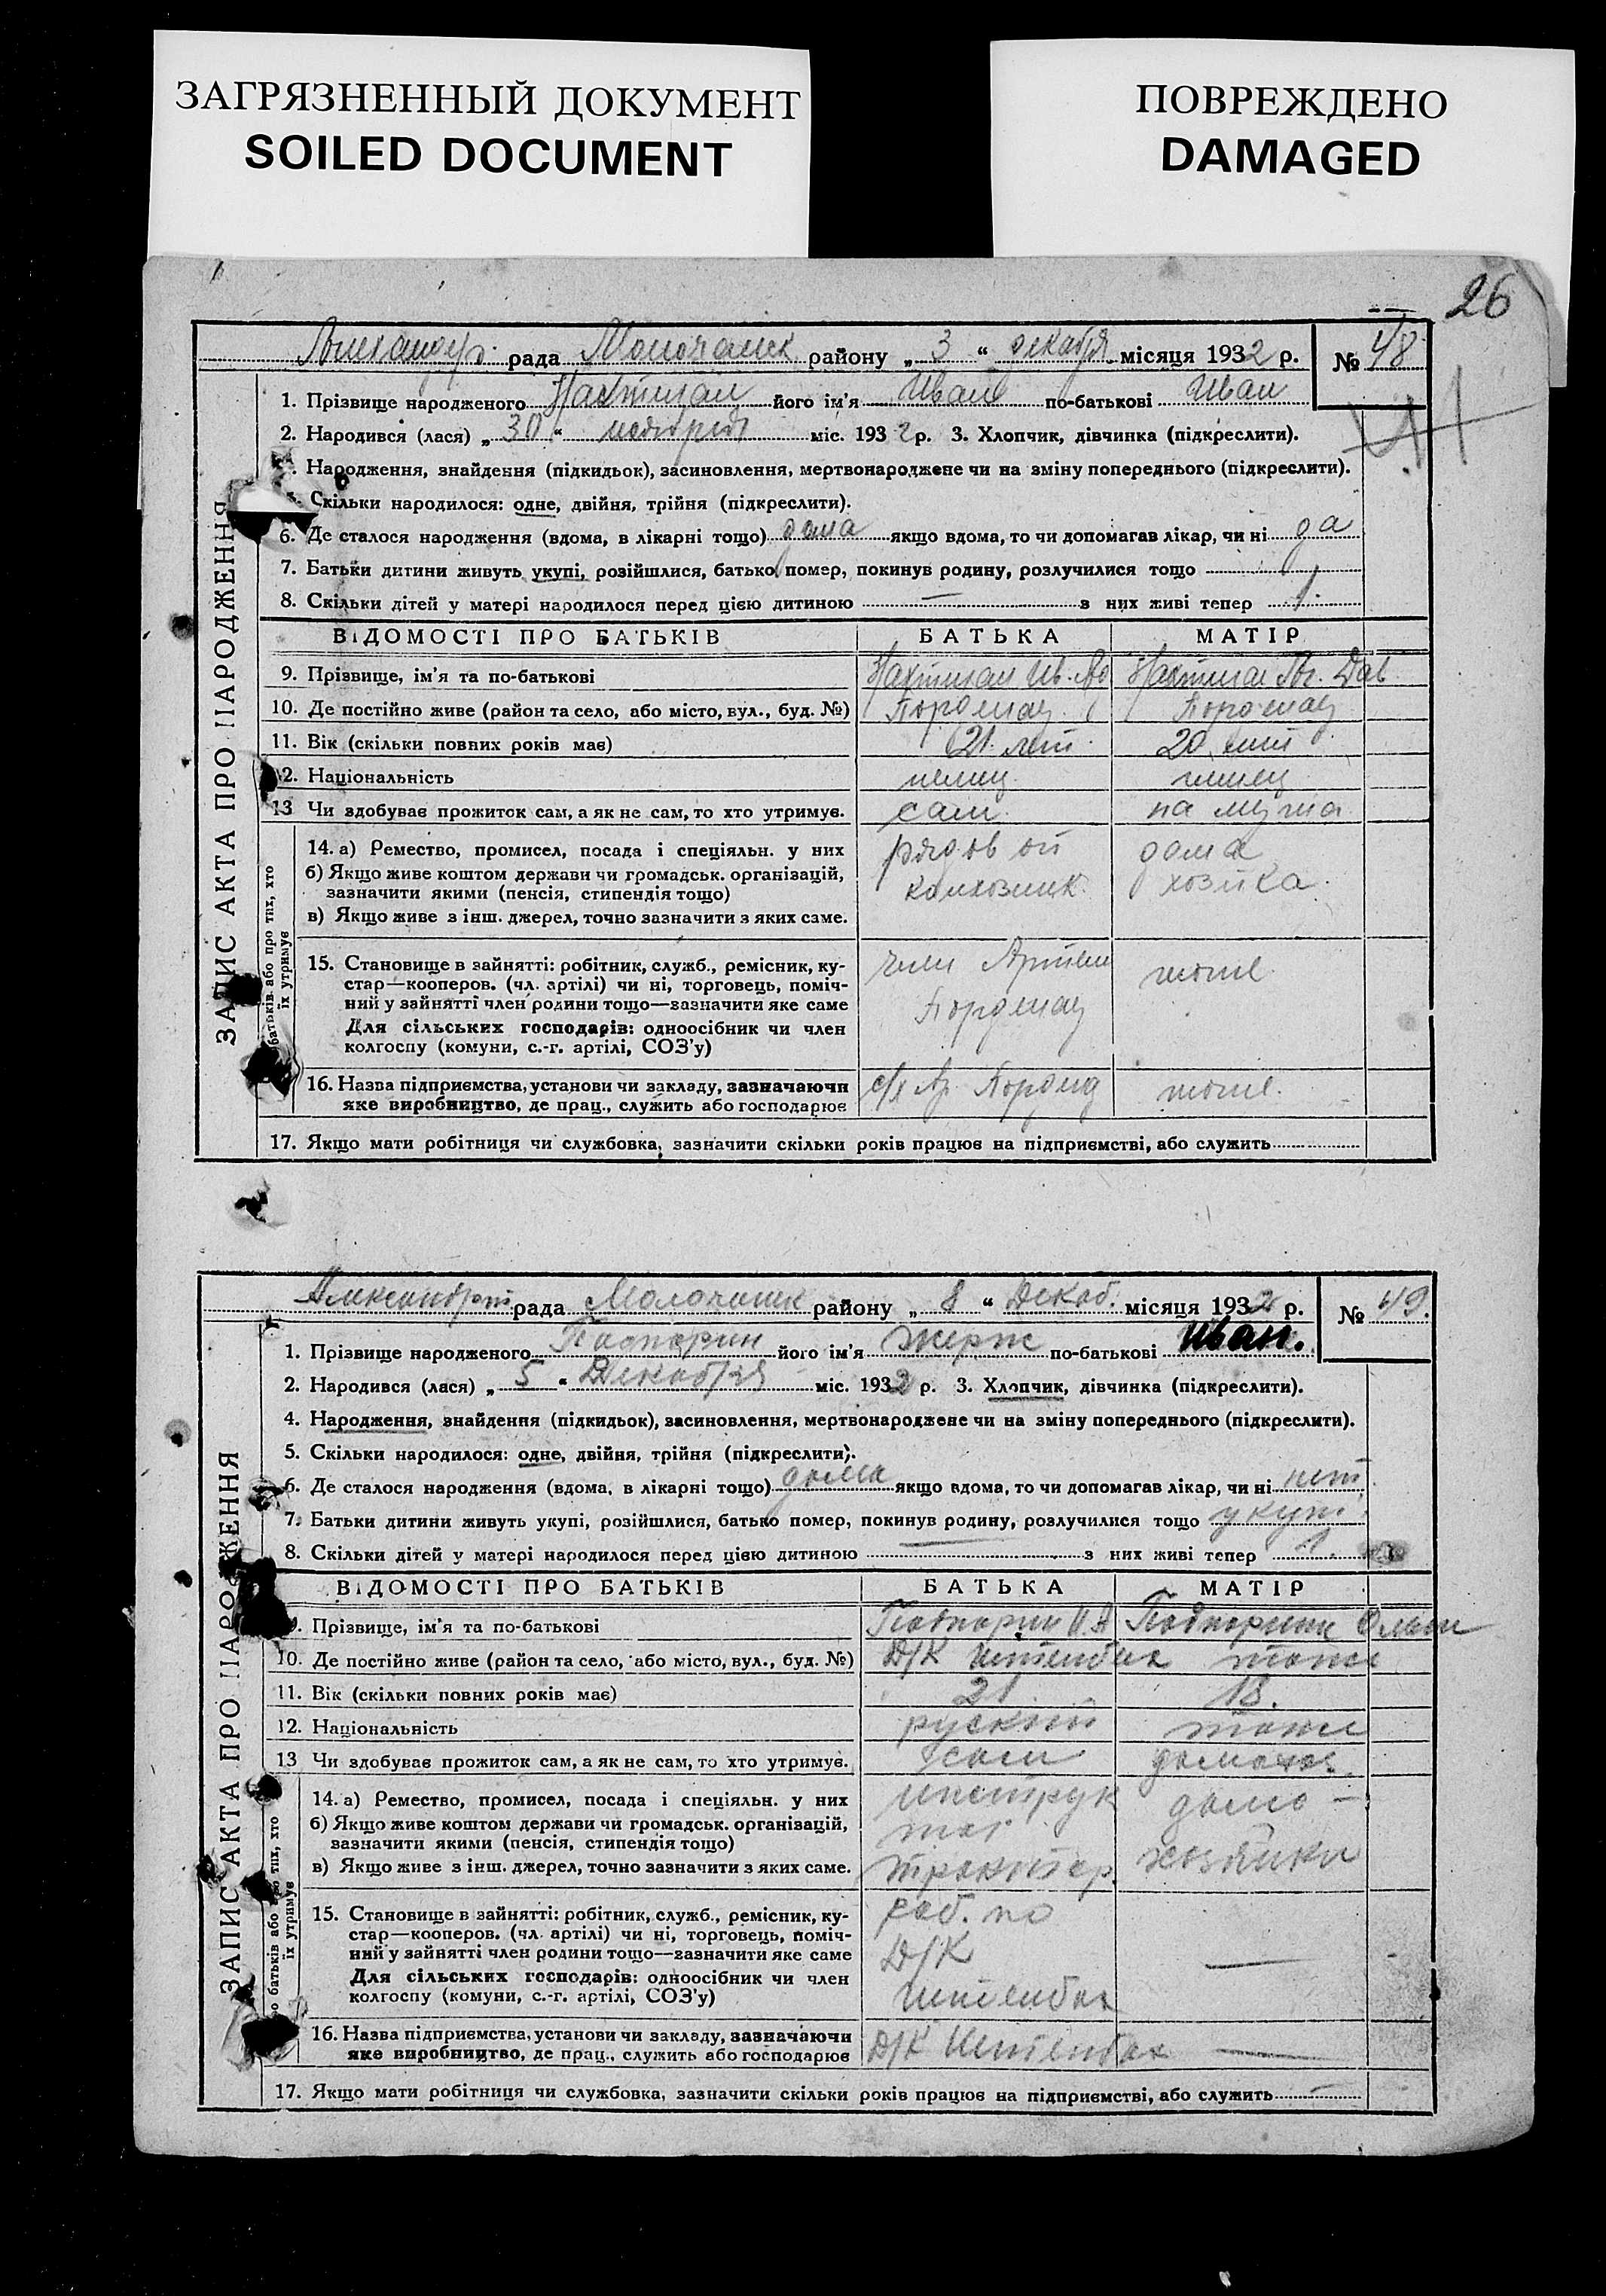 ЗАГРЯЗНЕННЫЙ ДОКУМЕНТ
SOILED DOCUMENT
ПОВРЕЖДЕНО
DAMAGED
26
рада Молочанск району „ 3 “ декабря місяця 1932 р. № 48
1. Прізвище народженого Нахтигал його ім'я Иван по-батькові Иван
2. Народився (лася) „ 30 “ ноября міс. 1932 р. 3. Хлопчик, дівчинка (підкреслити).
Народження, знайдення (підкидьок), засиновлення, мертвонароджене чи на зміну попереднього (підкреслити).
Скільки народилося: одне, двійня, трійня (підкреслити).
6. Де сталося народження (вдома, в лікарні тощо) дома якщо вдома, то чи допомагав лікар, чи ні да
7. Батьки дитини живуть укупі, розійшлися, батько помер, покинув родину, розлучилися тощо
8. Скільки дітей у матері народилося перед цією дитиною — з них живі тепер 1.
ЗАПИС АКТА ПРО НАРОДЖЕННЯ
ВІДОМОСТІ ПРО БАТЬКІВ БАТЬКА МАТІР
9. Прізвище, ім'я та по-батькові Нахтигал Ив. Нахтигал Дав
10. Де постійно живе (район та село, або місто, вул., буд. №) Порденау Порденау
11. Вік (скільки повних років має) 21 лет 20 лет
12. Національність немец немец
13 Чи здобував прожиток сам, а як не сам, то хто утримує. сам на мужа
батьків або про тих, хто їх утримує
14. а) Ремество, промисел, посада і спеціяльн. у них рядовой дома
б) Якщо живе коштом держави чи громадськ. організацій, колхозник хозйка
зазначити якими (пенсія, стипендія тощо)
в) Якщо живе з інш. джерел, точно зазначити з яких саме.
15. Становище в зайнятті: робітник, служб., ремісник, ку- член Артели тоже
стар—кооперов. (чл. артілі) чи ні, торговець, поміч-
ний у зайнятті член родини тощо—зазначити яке саме Порденау
Для сільських господарів: одноосібник чи член
колгоспу (комуни, с.-г. артілі, СОЗ'у)
16. Назва підприємства, установи чи закладу, зазначаючи с/х Ар. тоже.
яке виробництво, де прац., служить або господарює
17. Якщо мати робітниця чи службовка, зазначити скільки років працює на підприємстві, або служить
рада Молочанск району „ 8 “ Декаб. місяця 1932 р. № 49.
1. Прізвище народженого Подпорин його ім'я Жорж по-батькові Иван.
2. Народився (лася) „ 5 “ Декабря міс. 1932 р. 3. Хлопчик, дівчинка (підкреслити).
4. Народження, знайдення (підкидьок), засиновлення, мертвонароджене чи на зміну попереднього (підкреслити).
5. Скільки народилося: одне, двійня, трійня (підкреслити).
6. Де сталося народження (вдома, в лікарні тощо) дома якщо вдома, то чи допомагав лікар, чи ні нет
7. Батьки дитини живуть укупі, розійшлися, батько помер, покинув родину, розлучилися тощо укупі
8. Скільки дітей у матері народилося перед цією дитиною — з них живі тепер 1.
ЗАПИС АКТА ПРО НАРОДЖЕННЯ
ВІДОМОСТІ ПРО БАТЬКІВ БАТЬКА МАТІР
Прізвище, ім'я та по-батькові Подпорин И. А Подпорина
10. Де постійно живе (район та село, або місто, вул., буд. №) Д/К Штенбах тоже
11. Вік (скільки повних років має) 21 18.
12. Національність руский тоже
13 Чи здобував прожиток сам, а як не сам, то хто утримує. сам домохоз.
батьків або про тих, хто їх утримує
14. а) Ремество, промисел, посада і спеціяльн. у них инструк домо-
б) Якщо живе коштом держави чи громадськ. організацій, тор
зазначити якими (пенсія, стипендія тощо)
в) Якщо живе з інш. джерел, точно зазначити з яких саме. хозяйка
15. Становище в зайнятті: робітник, служб., ремісник, ку- раб. по
стар—кооперов. (чл. артілі) чи ні, торговець, поміч-
ний у зайнятті член родини тощо—зазначити яке саме Д/К —
Для сільських господарів: одноосібник чи член
колгоспу (комуни, с.-г. артілі, СОЗ'у) Штенбах
16. Назва підприємства, установи чи закладу, зазначаючи Д/К Штенбах —
яке виробництво, де прац., служить або господарює
17. Якщо мати робітниця чи службовка, зазначити скільки років працює на підприємстві, або служить —